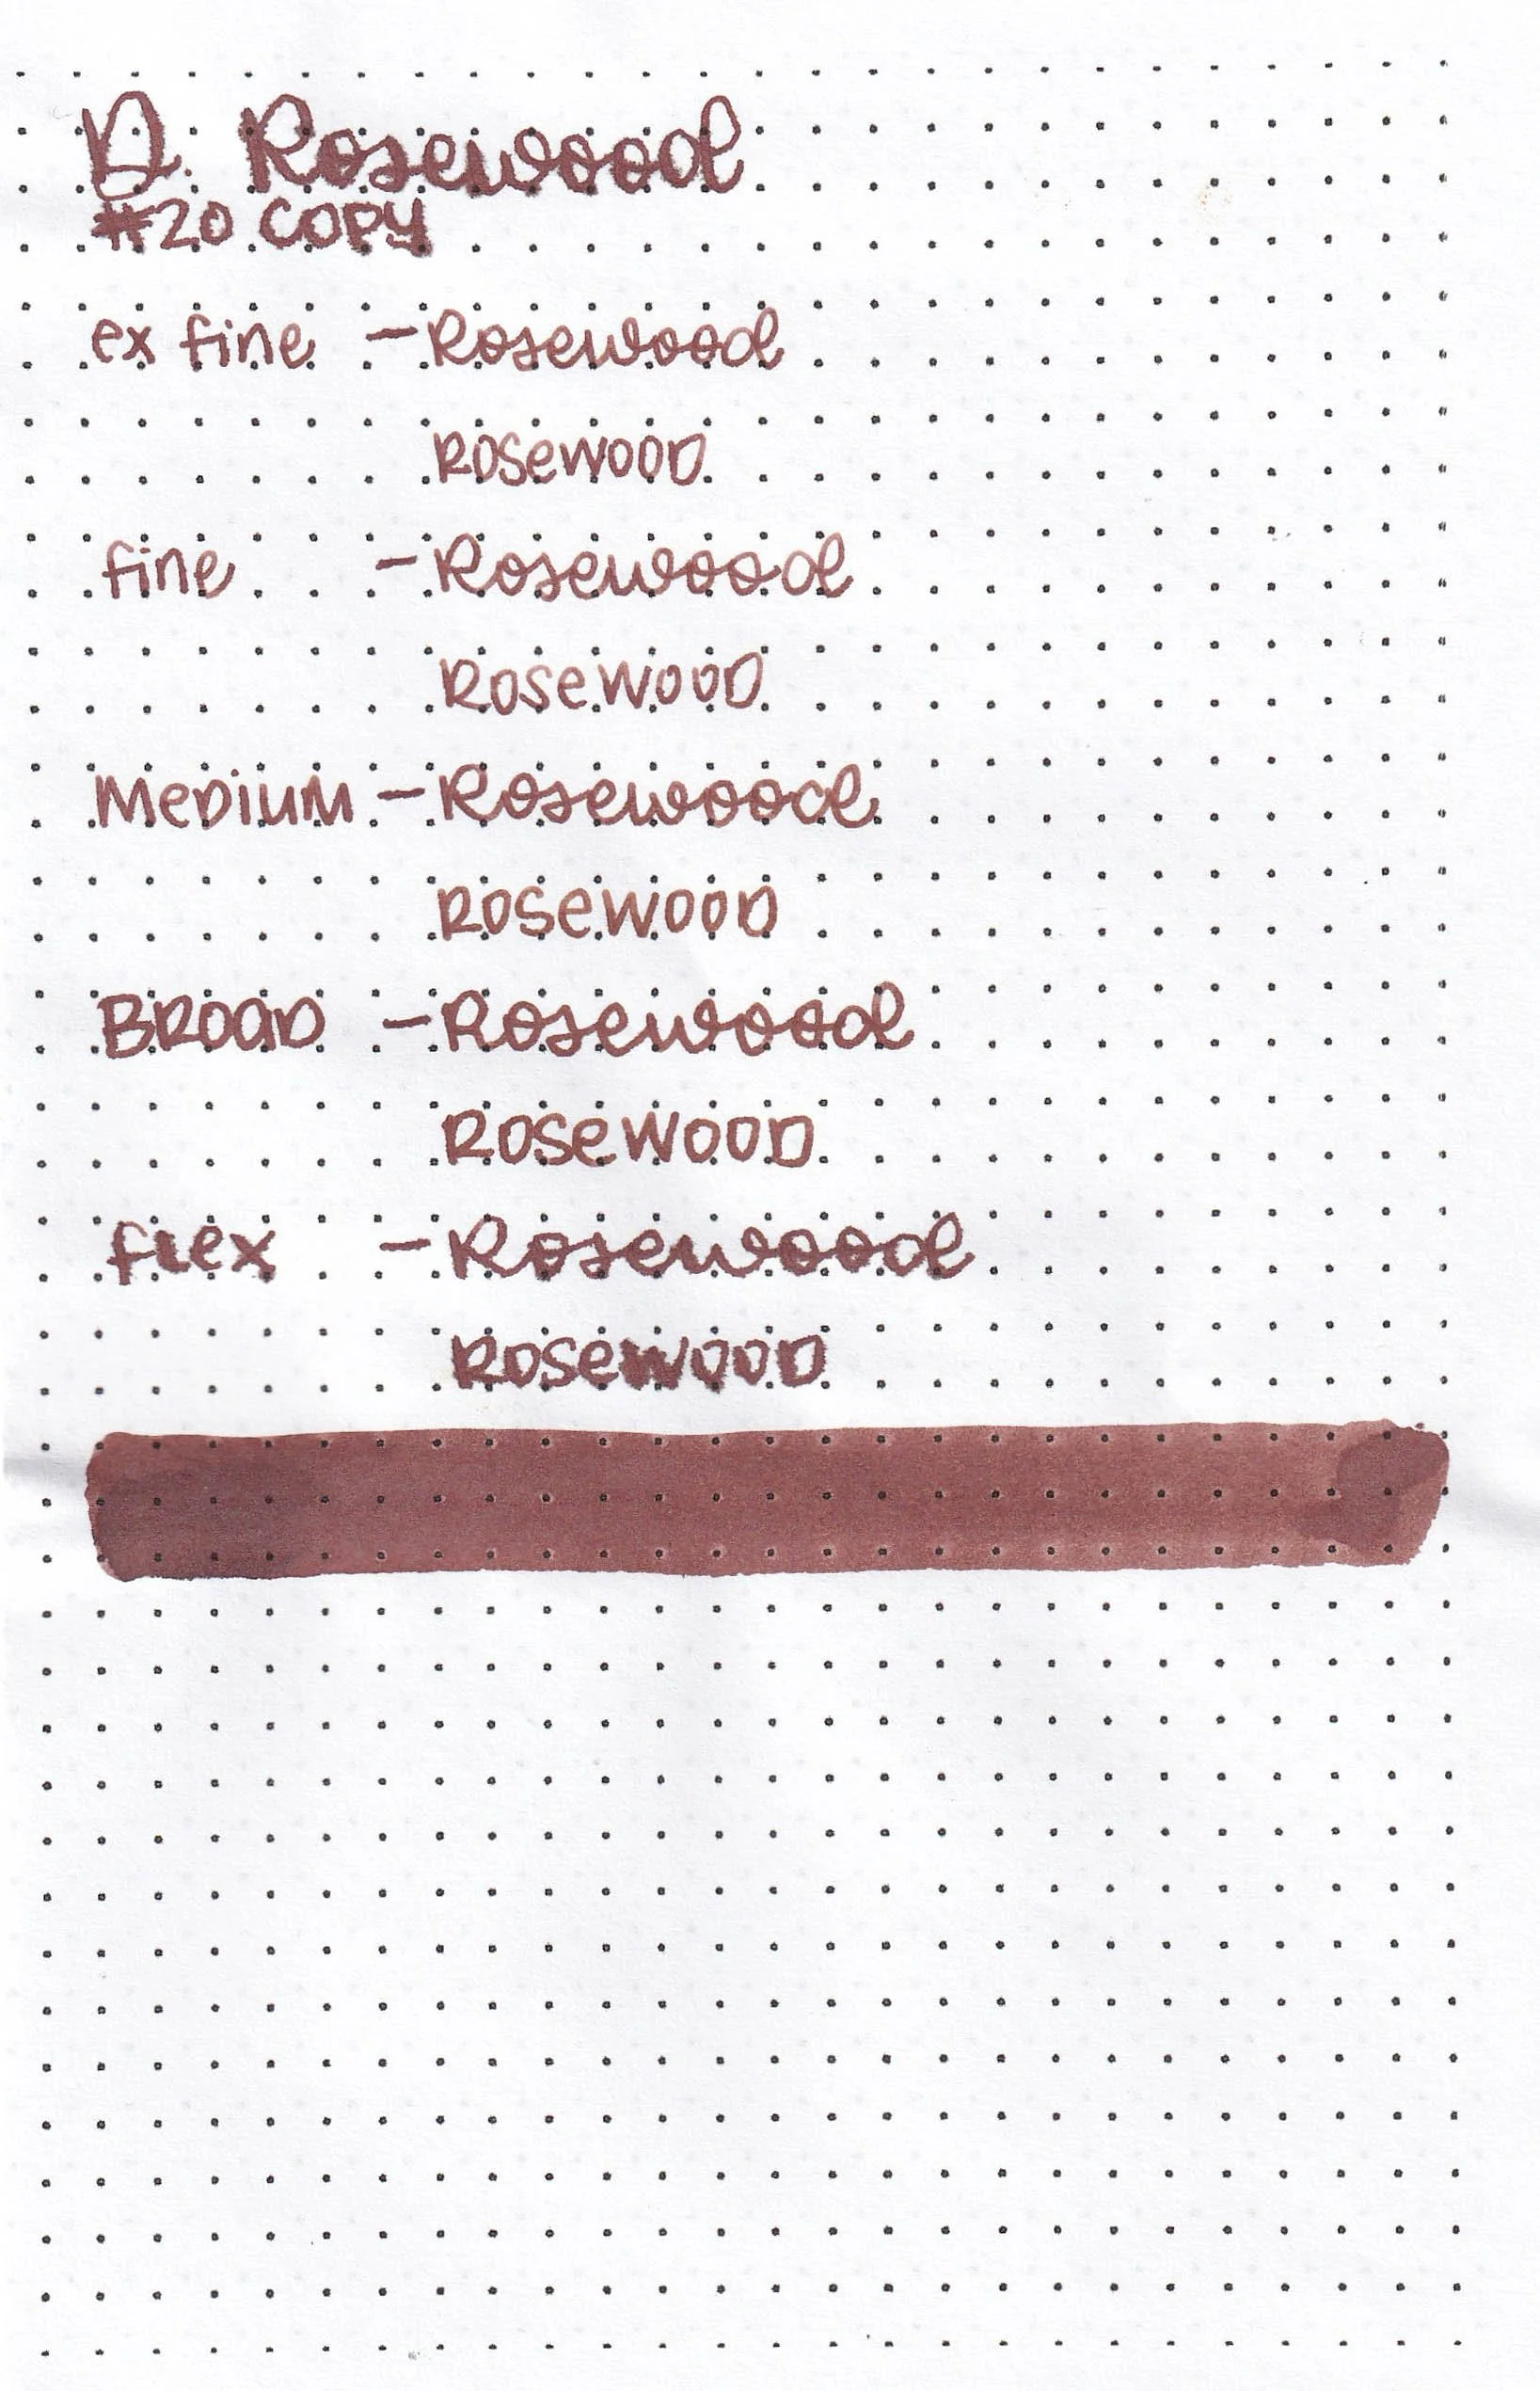 D. Rosewood
#20 COPY
ex fine - Rosewood
Rosewood
fine - Rosewood
Rosewood
Medium - Rosewood
Rosewood
Broad - Rosewood
Rosewood
flex - Rosewood
Rosewood